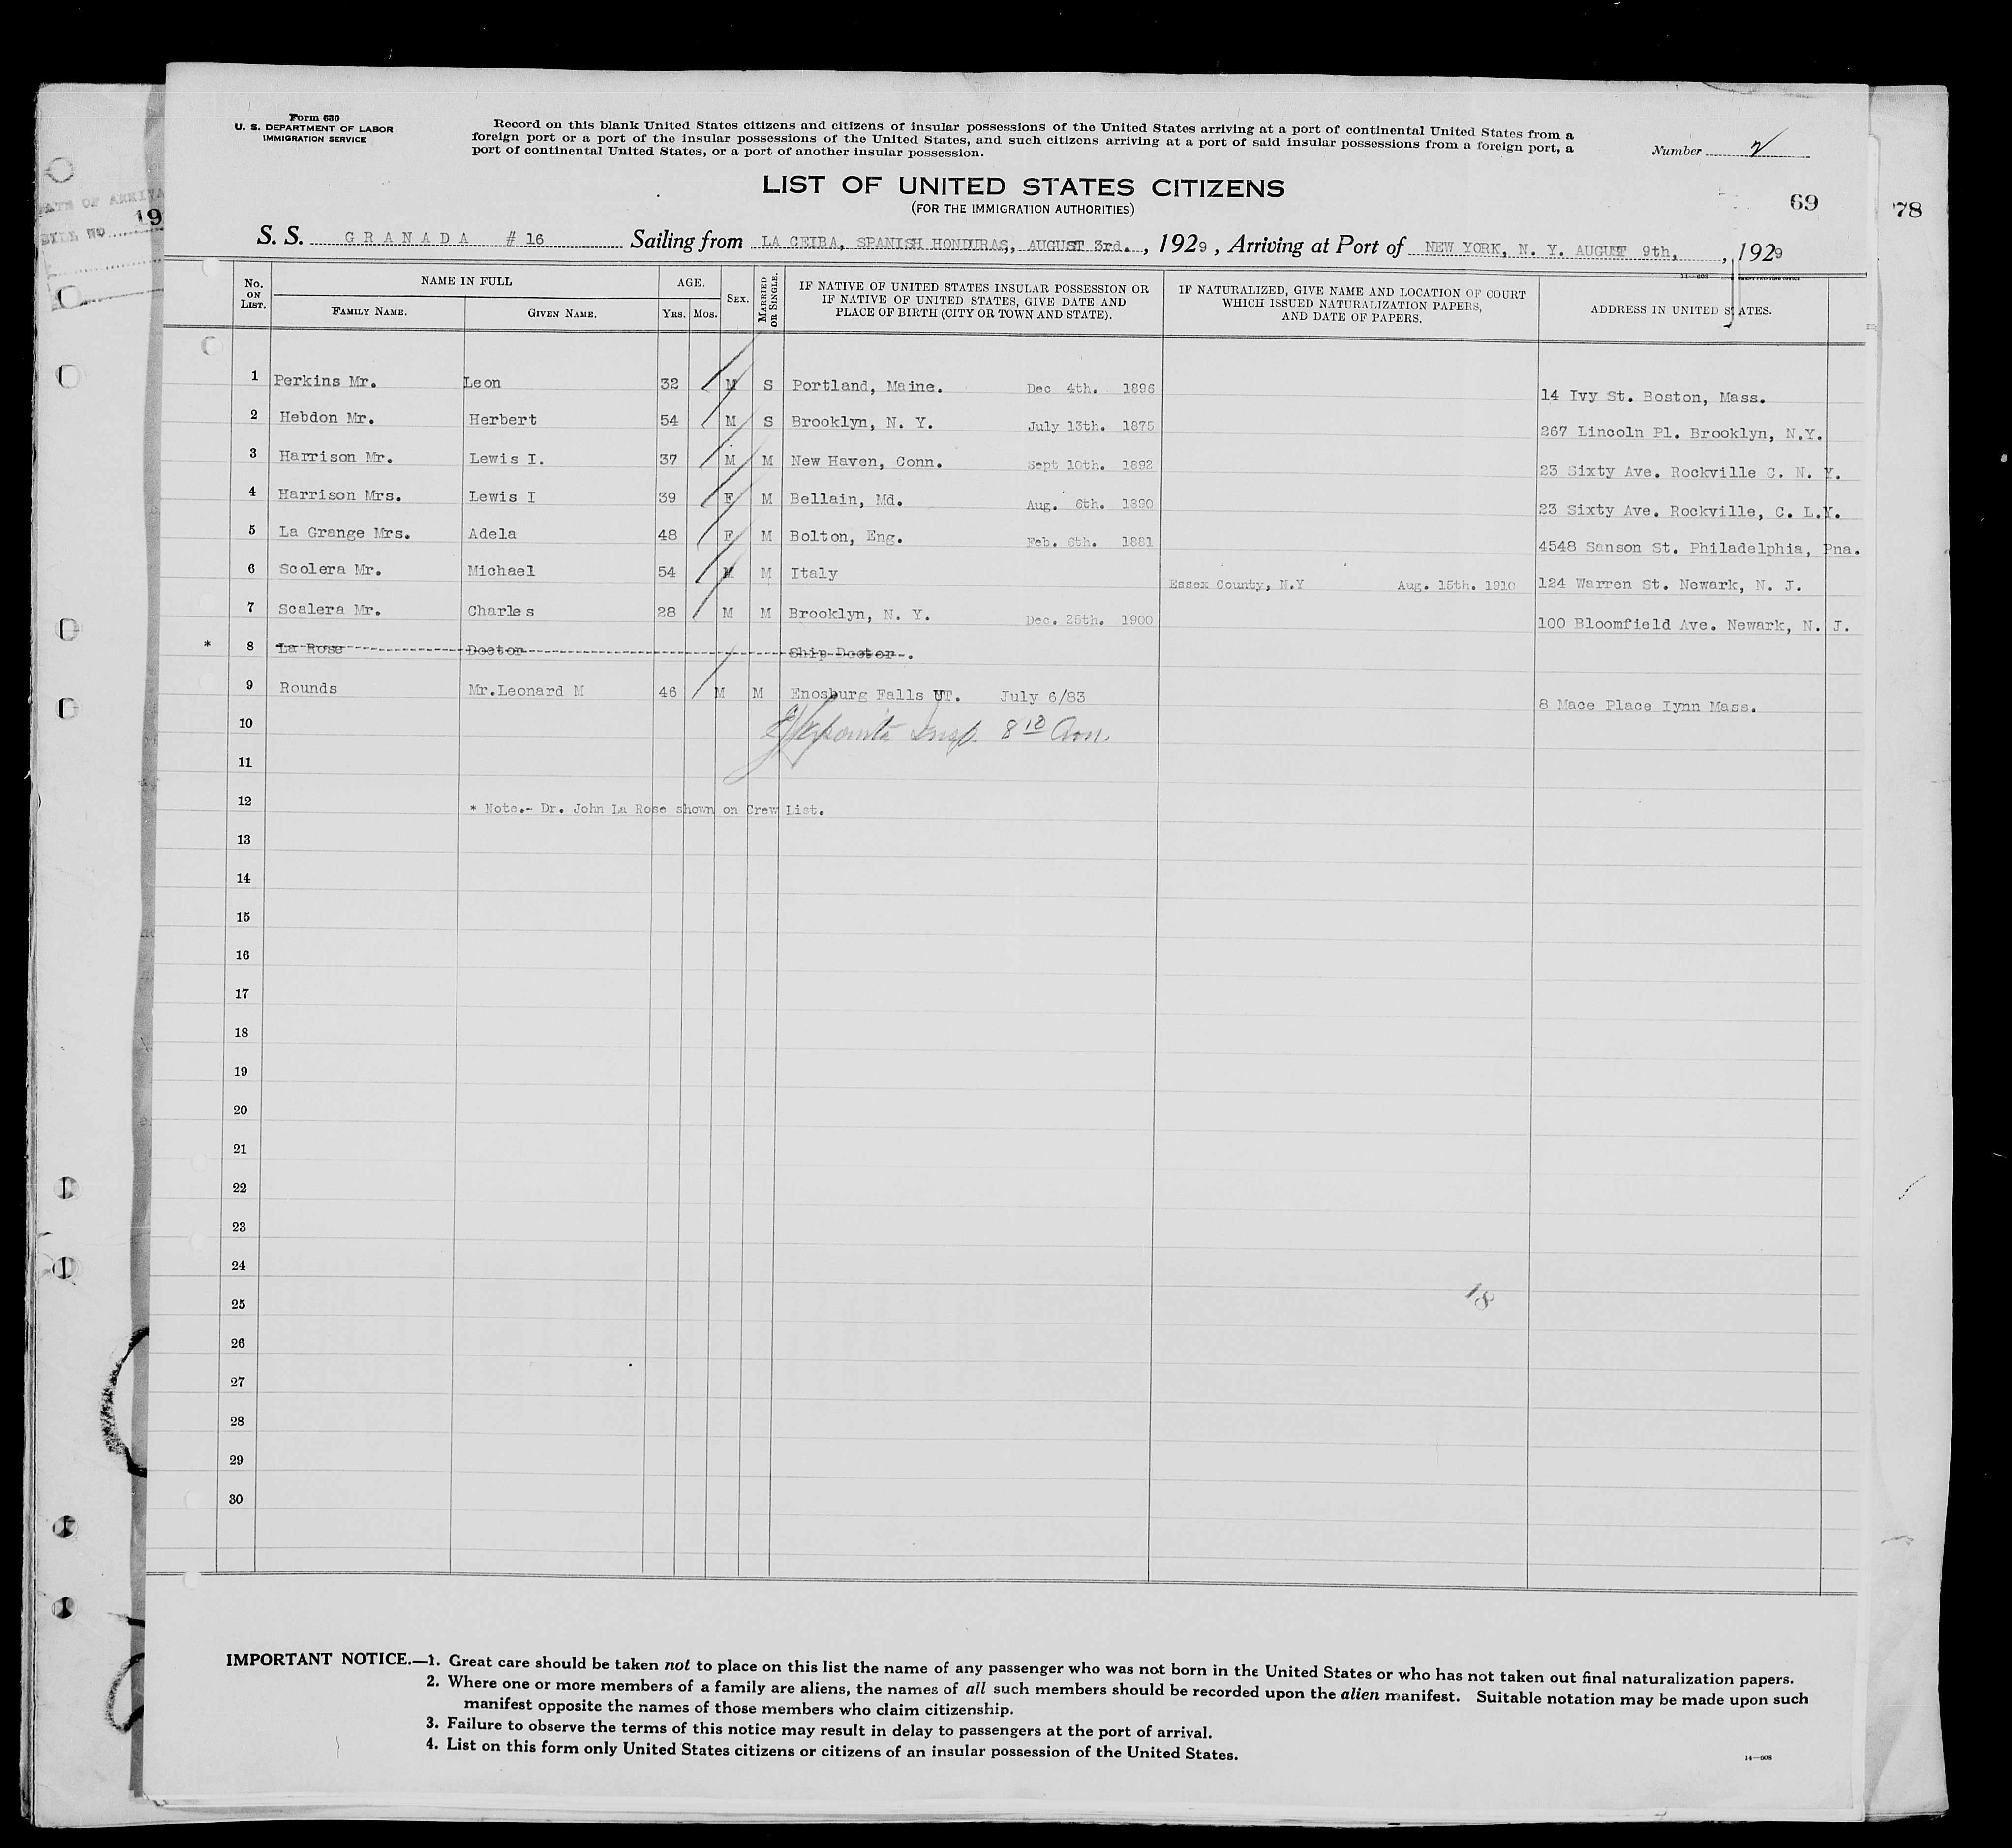 Form 630
U. S. DEPARTMENT OF LABOR
IMMIGRATION SERVICE
Record on this blank United States citizens and citizens of insular possessions of the United States arriving at a port of continental United States from a
foreign port or a port of the insular possessions of the United States, and such citizens arriving at a port of said insular possessions from a foreign port, a
port of continental United States, or a port of another insular possession.
Number 2
LIST OF UNITED STATES CITIZENS
(FOR THE IMMIGRATION AUTHORITIES)
69
78
19
S. S. GRANADA #16 Sailing from LA CEIBA, SPANISH HONDURAS, AUGUST 3rd. , 1929 , Arriving at Port of NEW YORK, N. Y. AUGUST 9th, , 1929
No. ON LIST. NAME IN FULL AGE. SEX. MARRIED OR SINGLE. IF NATIVE OF UNITED STATES INSULAR POSSESSION OR IF NATIVE OF UNITED STATES, GIVE DATE AND PLACE OF BIRTH (CITY OR TOWN AND STATE). IF NATURALIZED, GIVE NAME AND LOCATION OF COURT WHICH ISSUED NATURALIZATION PAPERS, AND DATE OF PAPERS. ADDRESS IN UNITED STATES.
FAMILY NAME. GIVEN NAME. YRS. MOS.
1 Perkins Mr. Leon 32 M S Portland, Maine. Dec 4th. 1896 14 Ivy St. Boston, Mass.
2 Hebdon Mr. Herbert 54 M S Brooklyn, N. Y. July 13th. 1875 267 Lincoln Pl. Brooklyn, N.Y.
3 Harrison Mr. Lewis I. 37 M M New Haven, Conn. Sept 10th. 1892 23 Sixty Ave. Rockville C. N. Y.
4 Harrison Mrs. Lewis I 39 F M Bellain, Md. Aug. 6th. 1890 23 Sixty Ave. Rockville, C. L.Y.
5 La Grange Mrs. Adela 48 F M Bolton, Eng. Feb. 6th. 1881 4548 Sanson St. Philadelphia, Pna.
6 Scolera Mr. Michael 54 M M Italy Essex County, N.Y Aug. 15th. 1910 124 Warren St. Newark, N. J.
7 Scalera Mr. Charles 28 M M Brooklyn, N. Y. Dec. 25th. 1900 100 Bloomfield Ave. Newark, N. J.
* 8 La Rose Doctor Ship Doctor.
9 Rounds Mr.Leonard M 46 M M Enosburg Falls VT. July 6/83 8 Mace Place Lynn Mass.
10 Insp. 8 10 Am.
11
12 * Note.- Dr. John La Rose shown on Crew List.
13
14
15
16
17
18
19
20
21
22
23
24
25 18
26
27
28
29
30
IMPORTANT NOTICE.—1. Great care should be taken not to place on this list the name of any passenger who was not born in the United States or who has not taken out final naturalization papers.
2. Where one or more members of a family are aliens, the names of all such members should be recorded upon the alien manifest. Suitable notation may be made upon such
manifest opposite the names of those members who claim citizenship.
3. Failure to observe the terms of this notice may result in delay to passengers at the port of arrival.
4. List on this form only United States citizens or citizens of an insular possession of the United States.
14—608